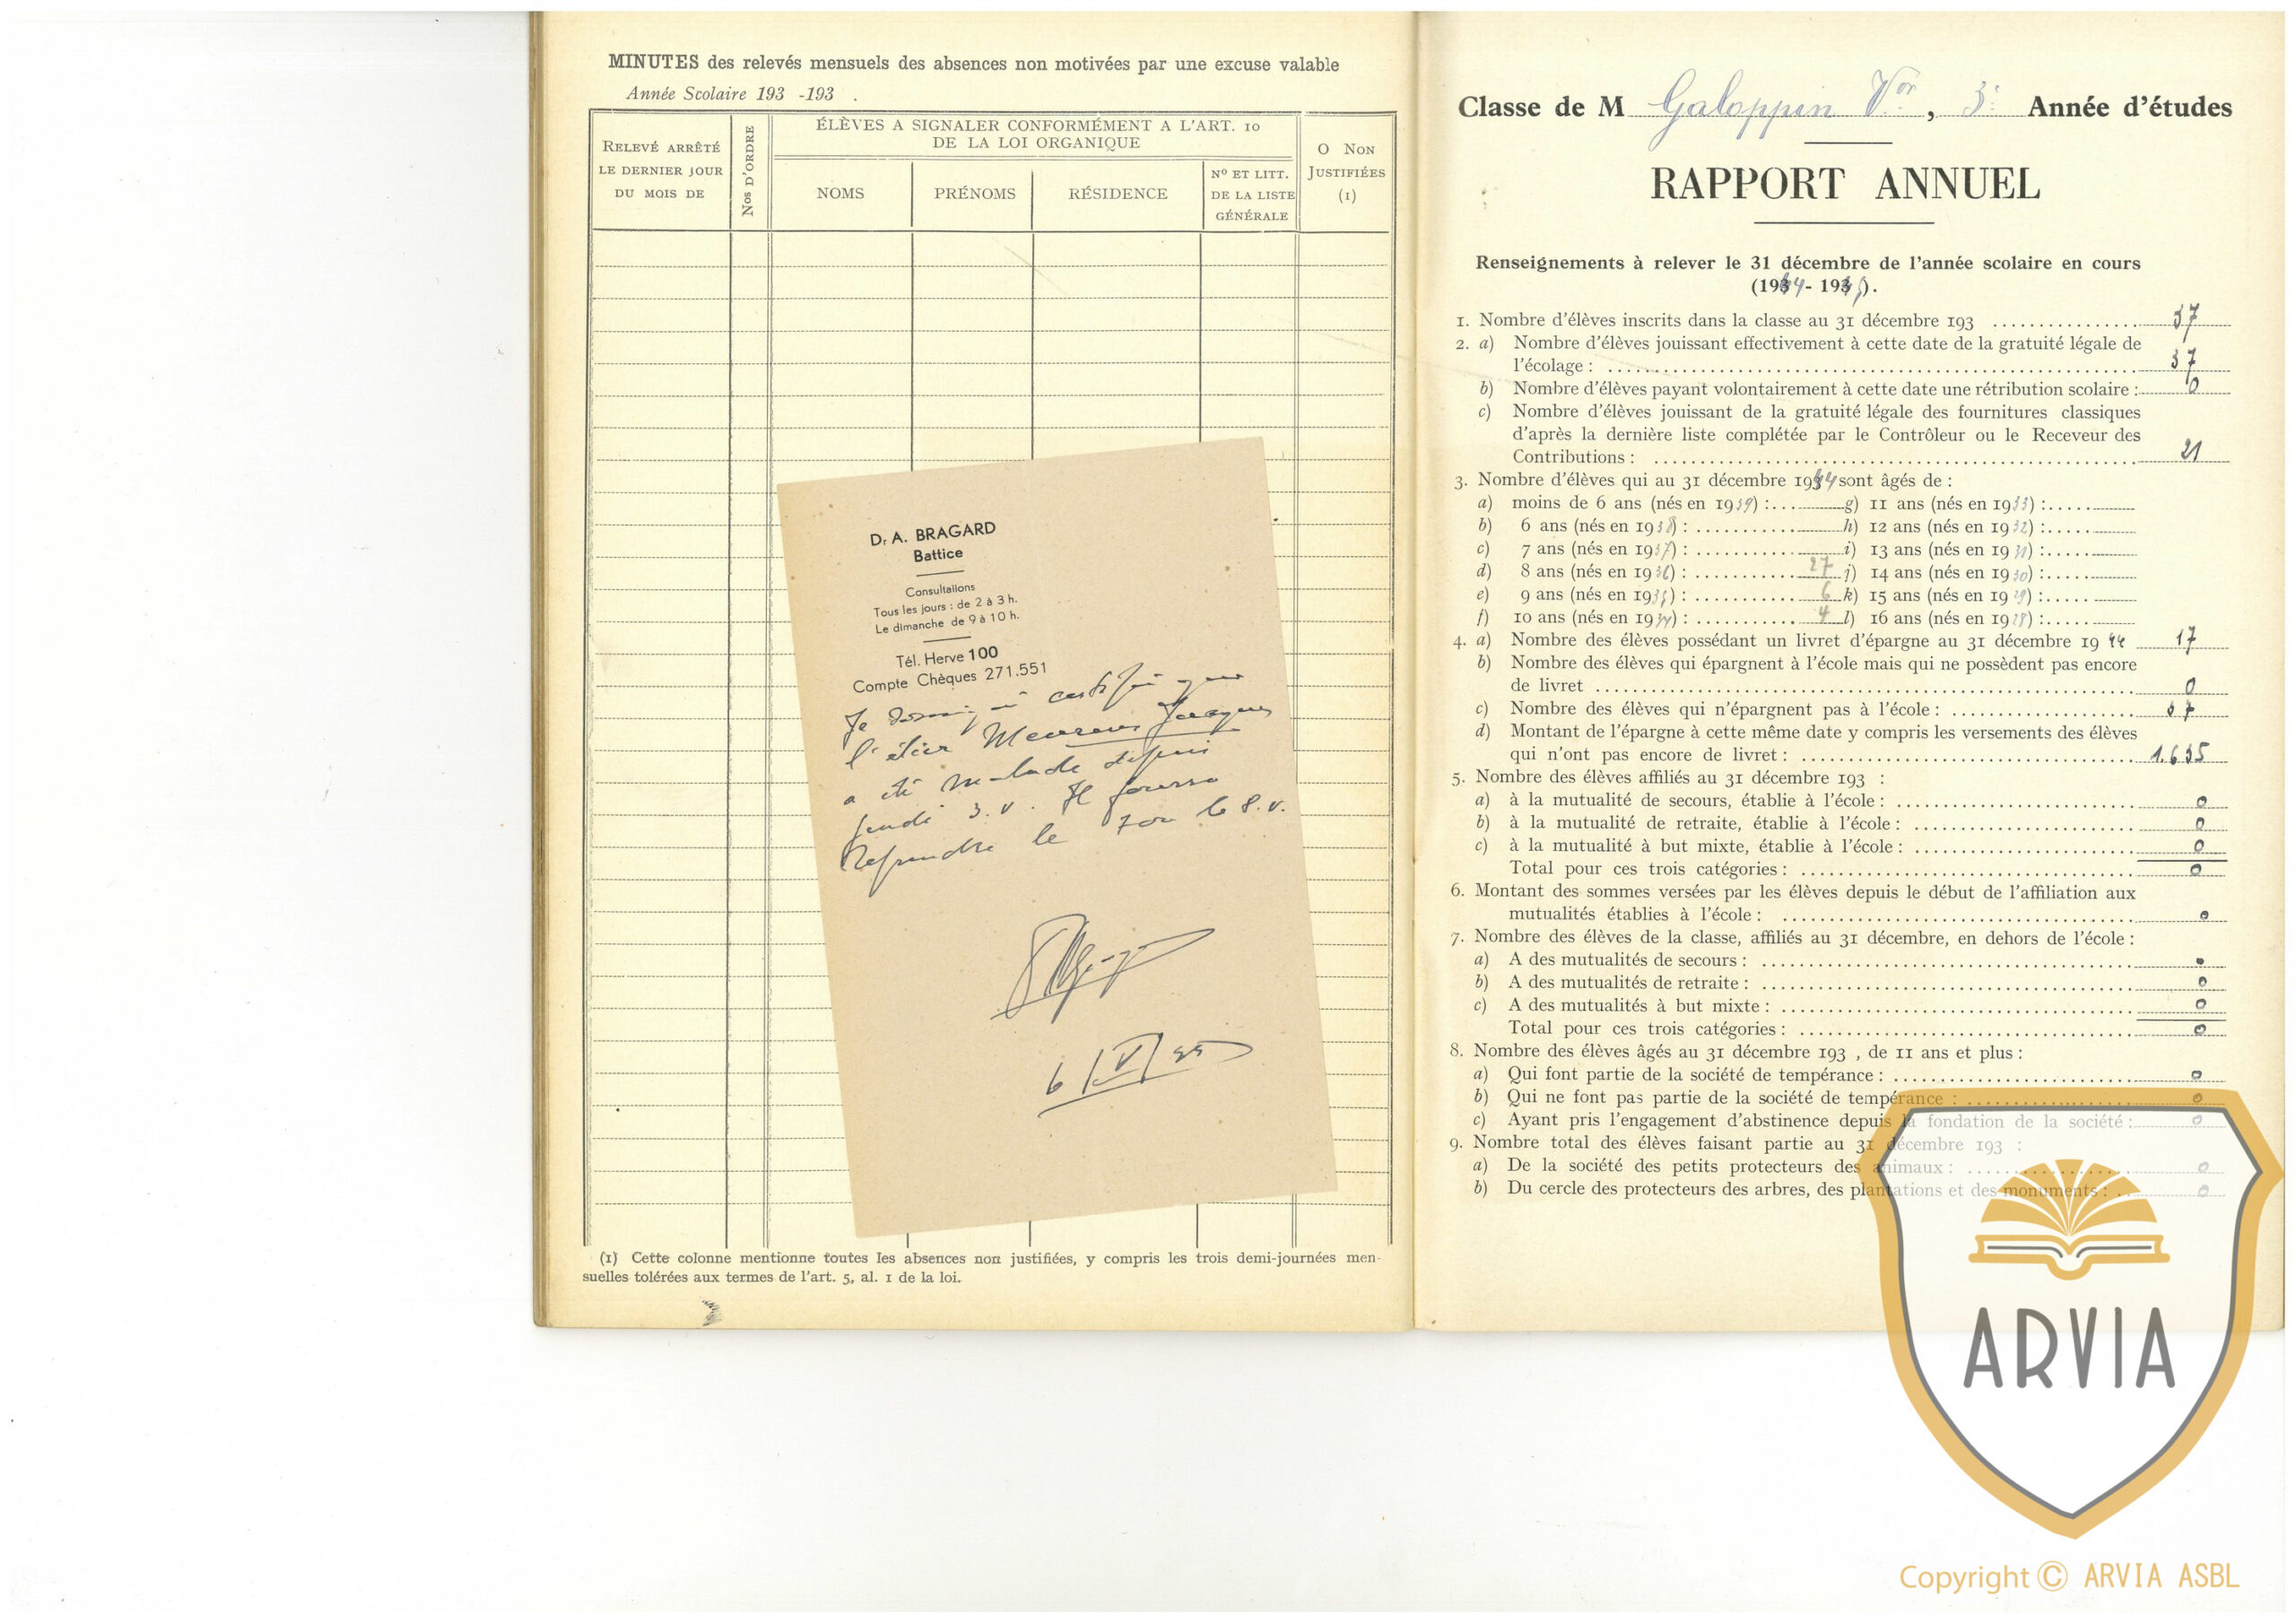 MINUTES des relevés mensuels des absences non motivées par une excuse valable
Année Scolaire 193 -193 .
RELEVÉ ARRÊTÉ
LE DERNIER JOUR
DU MOIS DE
Nos D'ORDRE
ÉLÈVES A SIGNALER CONFORMÉMENT A L'ART. 10
DE LA LOI ORGANIQUE
NOMS
PRÉNOMS
RÉSIDENCE
Nº ET LITT.
DE LA LISTE
GÉNÉRALE
O NON
JUSTIFIÉES
(1)
Dr A. BRAGARD
Battice
Consultations
Tous les jours : de 2 à 3 h.
Le dimanche de 9 à 10 h.
Tél. Herve 100
Compte Chèques 271.551
Je soussigné certifie que
l'élève Meurens Jacques
a été malade depuis
jeudi 3.V. Il pourra
reprendre le 7 ou le 8.V.
6/V/45
(1) Cette colonne mentionne toutes les absences non justifiées, y compris les trois demi-journées men-
suelles tolérées aux termes de l'art. 5, al. 1 de la loi.
Classe de M Galoppin Vor, 3e Année d'études
RAPPORT ANNUEL
Renseignements à relever le 31 décembre de l'année scolaire en cours
(1944 - 1945).
1. Nombre d'élèves inscrits dans la classe au 31 décembre 193 ................ 37
2. a) Nombre d'élèves jouissant effectivement à cette date de la gratuité légale de
l'écolage : ................ 37
b) Nombre d'élèves payant volontairement à cette date une rétribution scolaire : 0
c) Nombre d'élèves jouissant de la gratuité légale des fournitures classiques
d'après la dernière liste complétée par le Contrôleur ou le Receveur des
Contributions : ................ 21
3. Nombre d'élèves qui au 31 décembre 1944 sont âgés de :
a) moins de 6 ans (nés en 1939) :... g) 11 ans (nés en 1933) :.....
b) 6 ans (nés en 1938) : ........... h) 12 ans (nés en 1932) :.....
c) 7 ans (nés en 1937) : ........... i) 13 ans (nés en 1931) :.....
d) 8 ans (nés en 1936) : ........... 27 j) 14 ans (nés en 1930) :.....
e) 9 ans (nés en 1935) : ........... 6 k) 15 ans (nés en 1929) :.....
f) 10 ans (nés en 1934) : ........... 4 l) 16 ans (nés en 1928) :.....
4. a) Nombre des élèves possédant un livret d'épargne au 31 décembre 1944 17
b) Nombre des élèves qui épargnent à l'école mais qui ne possèdent pas encore
de livret ................ 0
c) Nombre des élèves qui n'épargnent pas à l'école : ................ 37
d) Montant de l'épargne à cette même date y compris les versements des élèves
qui n'ont pas encore de livret : ................ 1.635
5. Nombre des élèves affiliés au 31 décembre 193 :
a) à la mutualité de secours, établie à l'école : ................ 0
b) à la mutualité de retraite, établie à l'école : ................ 0
c) à la mutualité à but mixte, établie à l'école : ................ 0
Total pour ces trois catégories : ................ 0
6. Montant des sommes versées par les élèves depuis le début de l'affiliation aux
mutualités établies à l'école : ................ 0
7. Nombre des élèves de la classe, affiliés au 31 décembre, en dehors de l'école :
a) A des mutualités de secours : ................ 0
b) A des mutualités de retraite : ................ 0
c) A des mutualités à but mixte : ................ 0
Total pour ces trois catégories : ................ 0
8. Nombre des élèves âgés au 31 décembre 193 , de 11 ans et plus :
a) Qui font partie de la société de tempérance : ................ 0
b) Qui ne font pas partie de la société de tempérance : ................ 0
c) Ayant pris l'engagement d'abstinence depuis la fondation de la société : 0
9. Nombre total des élèves faisant partie au 31 décembre 193 :
a) De la société des petits protecteurs des animaux : ................ 0
b) Du cercle des protecteurs des arbres, des plantations et des monuments : .. 0
ARVIA
Copyright © ARVIA ASBL